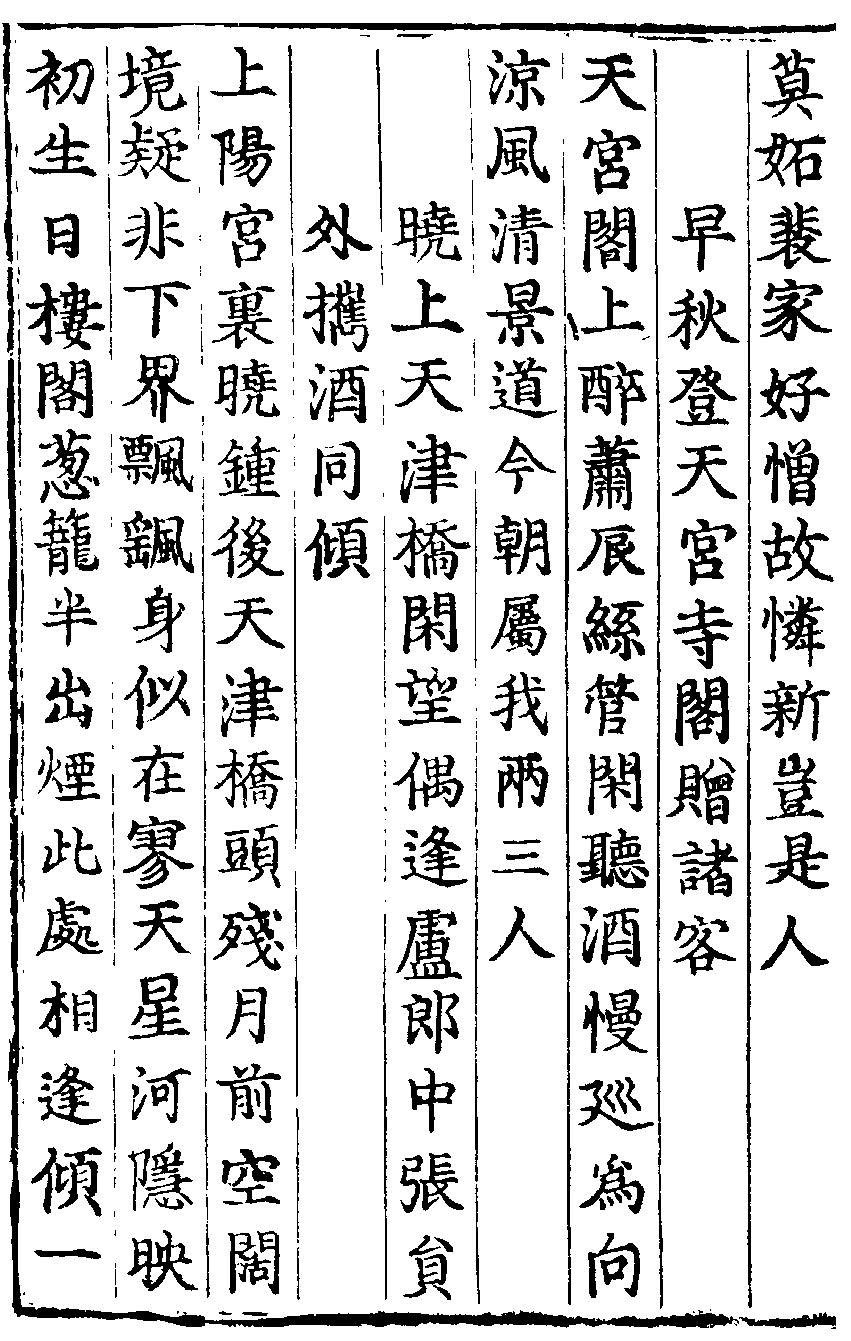 莫妬裴家好憎故憐新豈是人
早秋登天宮寺閣贈諸客
天宮閣上醉蕭辰絲管閑聽酒慢廵爲向
涼風清景道今朝屬我兩三人
曉上天津橋閑望偶逢盧郎中張貟
外攜酒同傾
上陽宮裏曉鍾後天津橋頭殘月前空闊
境疑非下界飄飖身似在寥天星河隱映
初生日樓閣葱蘢半出煙此處相逢傾一